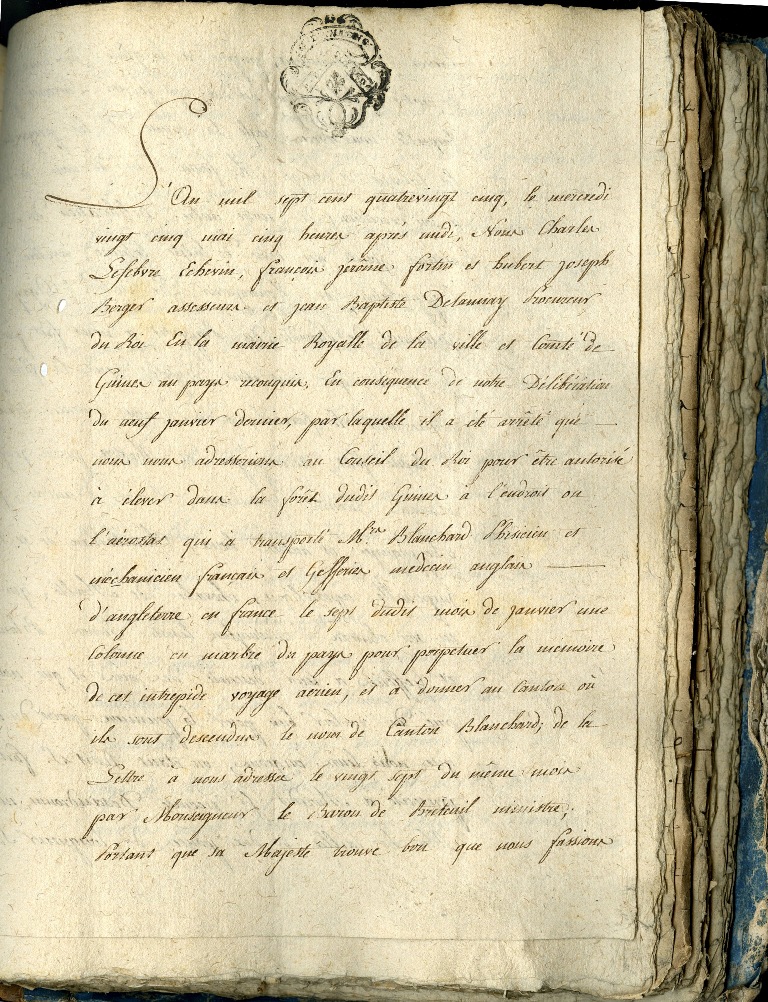 L'An mil sept cent quatrevingt cinq, le mercredi
vingt cinq mai cinq heures après midi, Nous Charles
Lefebvre Echevin, françois jérôme fortin et hubert joseph
Berger assesseurs et jean Baptiste Delaunay Procureur
du Roi En la mairie Royalle de la ville et Comté de
Guines au pays reconquis, En conséquence de notre Délibération
du neuf janvier dernier, par laquelle il a été arrêté que
nous nous adresserions au Conseil du Roi pour être autorisé
à élever dans la forêt dudit Guines à l'endroit ou
l'aérostat qui à transporté Mrs Blanchard Phisicien et
méchanicien francais et Gefferies médecin anglais
d'angleterre en france le sept dudit mois de janvier une
Colonne en marbre du pays pour perpetuer la mémoire
de cet intrepide voyage aërien, et à donner au Canton où
ils sont descendus le nom de Canton Blanchard; de la
Lettre a nous adressée le vingt sept du même mois
par Monseigneur le Baron de Breteuil ministre,
Portant que sa Majesté trouve bon que nous fassions